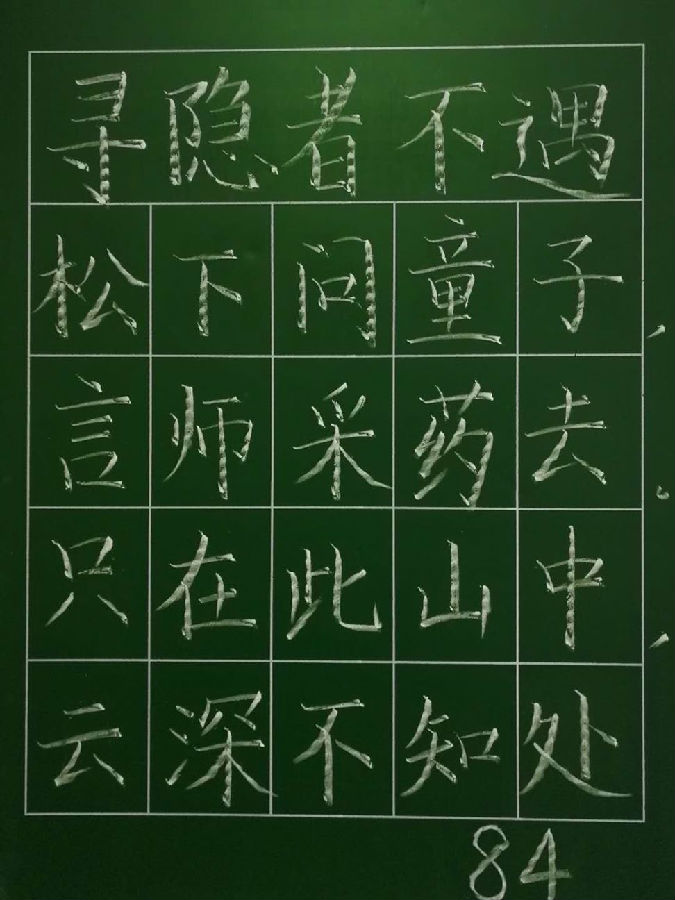 寻隐者不遇
松下问童子，
言师采药去。
只在此山中，
云深不知处
84